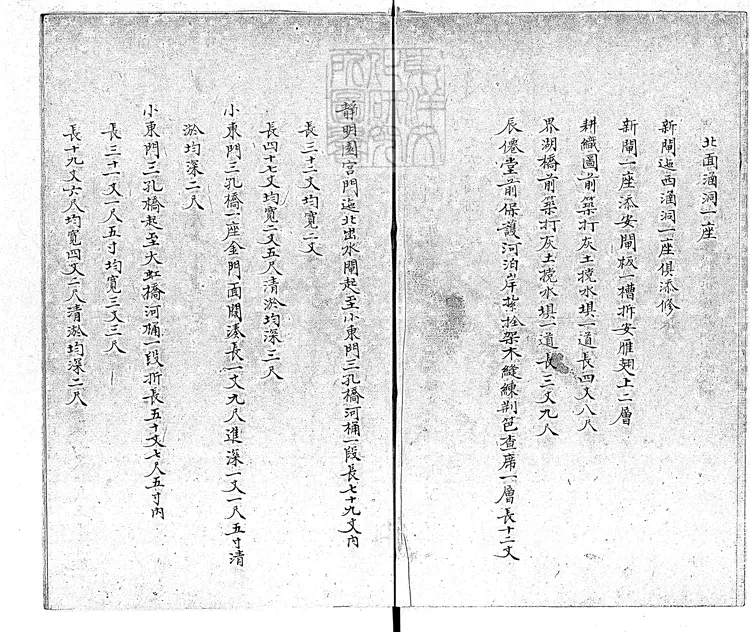 北面涵洞一座
新閘迤西涵洞一座俱添修
新閘一座添安閘板一槽拆安雁翅上二層
耕織圖前築打灰土攪水埧一道長四丈八尺
界湖橋前築打灰土攪水埧一道長三丈九尺
辰僊堂前保護河泊岸紥拴架木縫練荆笆查席一層長十二丈
靜明園宮門迤北出水閘起至小東門三孔橋河桶一段長七十九丈內
長三十二丈均寬二丈
長四十七丈均寬二丈五尺清淤均深三尺
小東門三孔橋一座金門面闊湊長一丈九尺進深一丈一尺五寸清
淤均深二尺
小東門三孔橋起至大虹橋河桶一段折長五十丈七尺五寸內
長三十一丈一尺五寸均寬三丈三尺
長十九丈六尺均寬四丈二尺清淤均深二尺
東洋文化研究所圖書